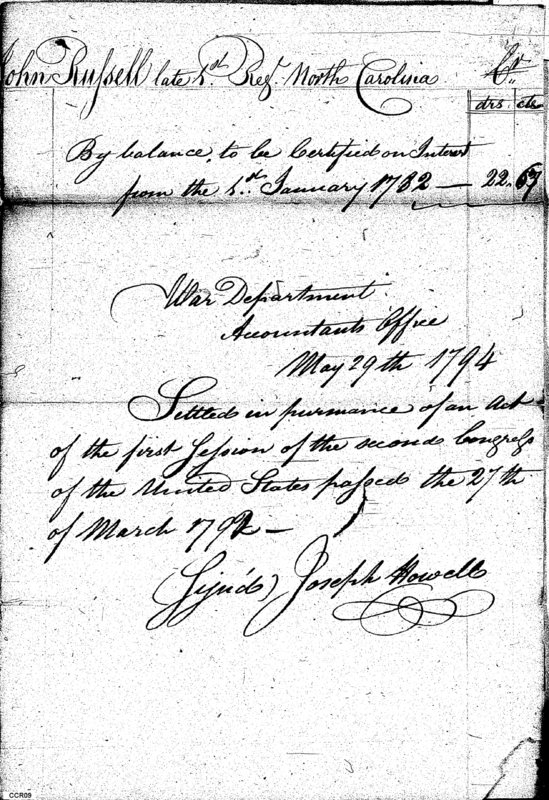 John Russell late 1st. Regt. North Carolina Cr.
drs cts
By balance, to be Certified on Interest
from the 1st. January 1782 — 22.67
War Department
Accountants Office
May 29th 1794
Settled in pursuance of an Act
of the first Session of the second Congress
of the United States passed the 27th
of March 1792 —
(Sign'd) Joseph Howell
CCR09